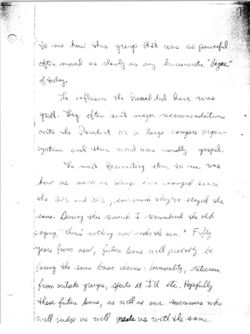 to me how this group that was so powerful
often moved as slowly as any bureaucratic "
of today.
The influence the Board had there was
great. They often sent major recommendations
onto the President or a large campus organ-
ization and their word was usually gospel.
The most fascinating item to me was
how as much as things have changed since
the 20's and 30's, much they've stayed the
same. During this search I remembered the old
saying, "there's nothing new under the sun." Fifty
years from now, future boards will probably be
facing the same basic issues: immorality, criticism
from outside groups, sports at I'll etc. Hopefully
these future boards, as well as our successors who
will judge us will grade us with the same